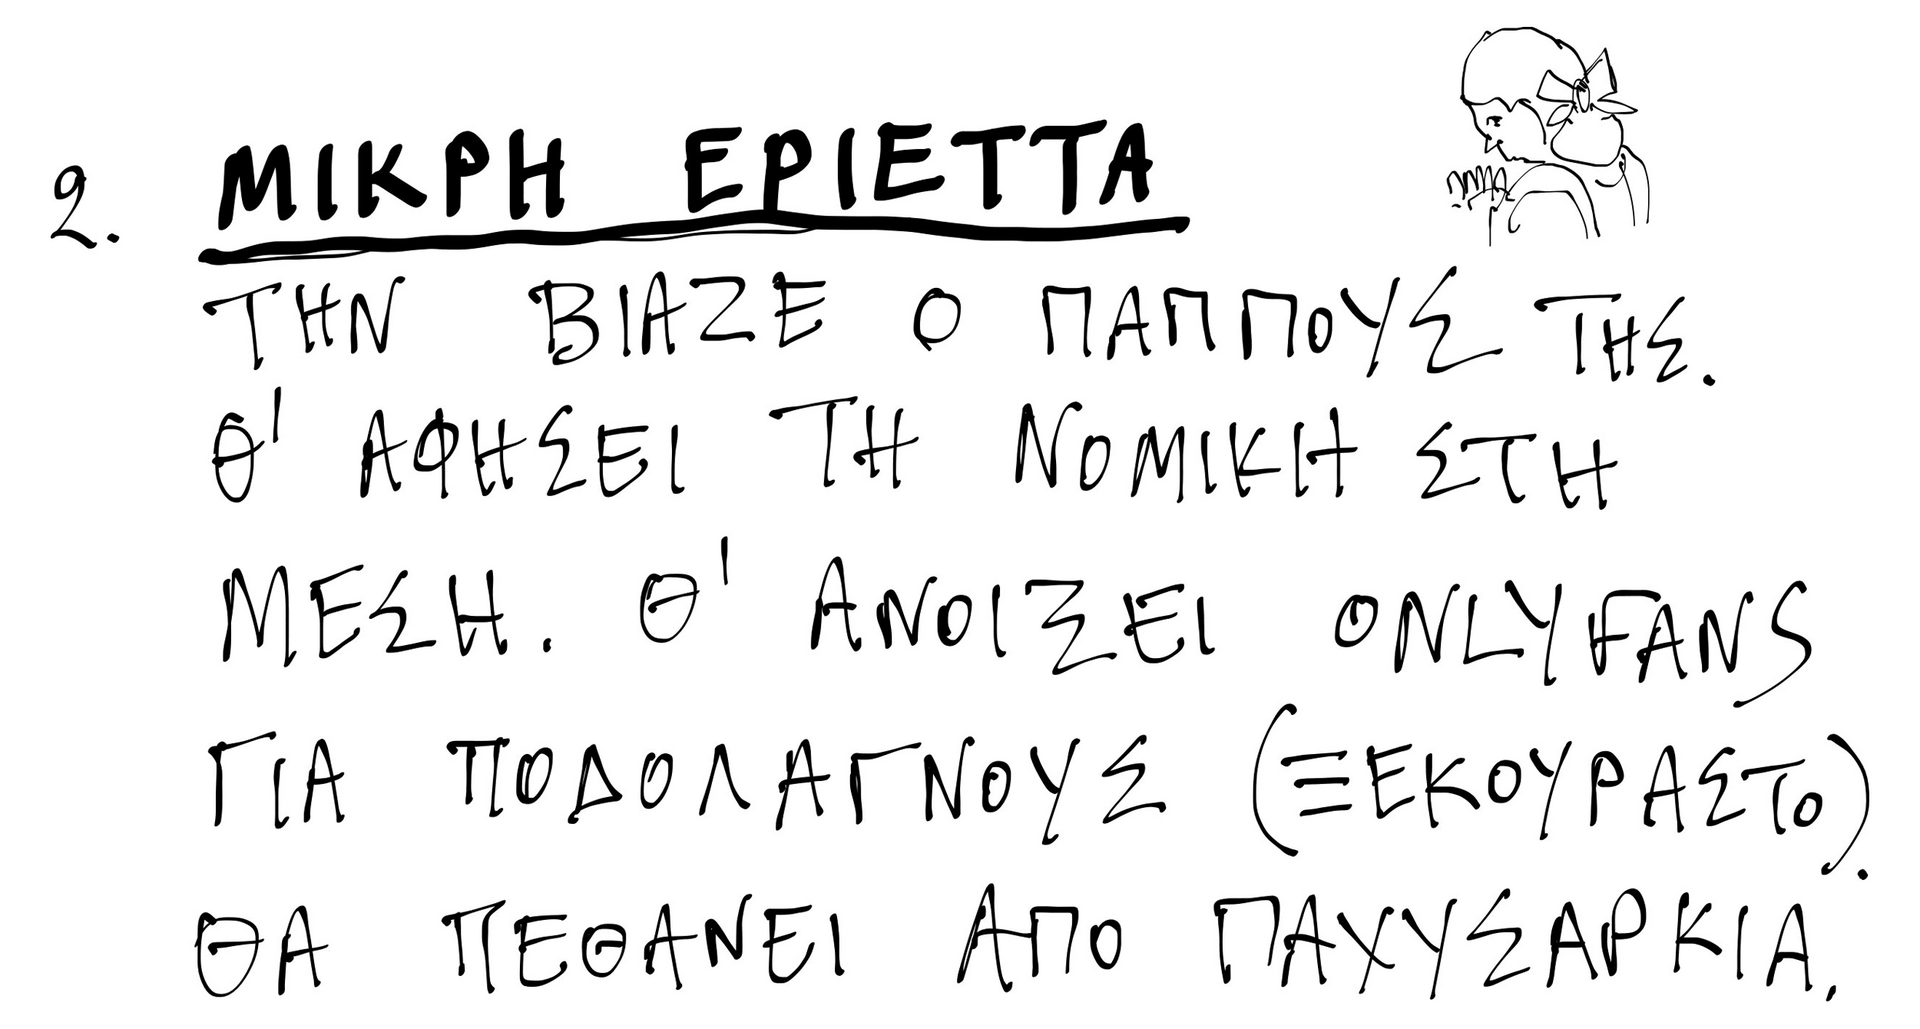 2. ΜΙΚΡΗ ΕΡΙΕΤΤΑ
ΤΗΝ ΒΙΑΖΕ Ο ΠΑΠΠΟΥΣ ΤΗΣ.
Θ' ΑΦΗΣΕΙ ΤΗ ΝΟΜΙΚΗ ΣΤΗ
ΜΕΣΗ. Θ' ΑΝΟΙΞΕΙ ONLYFANS
ΓΙΑ ΠΟΔΟΛΑΓΝΟΥΣ (ΞΕΚΟΥΡΑΣΤΟ).
ΘΑ ΠΕΘΑΝΕΙ ΑΠΟ ΠΑΧΥΣΑΡΚΙΑ.